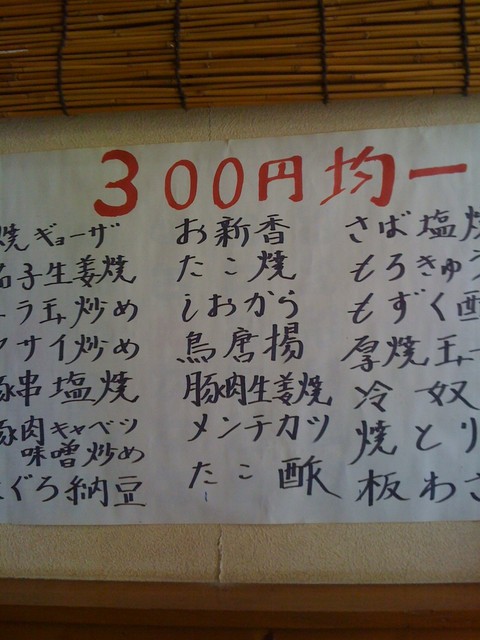 300円均一
焼ギョーザ
茄子生姜焼
ニラ玉炒め
ヤサイ炒め
豚串塩焼
豚肉キャベツ
味噌炒め
まぐろ納豆
お新香
たこ焼
しおから
鳥唐揚
豚肉生姜焼
メンチカツ
たこ酢
さば塩焼
もろきゅう
もずく酢
厚焼玉子
冷奴
焼とり
板わさ